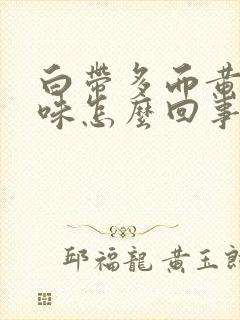 白帶多而黃
味怎麼回事
邱福龍 黃玉郎